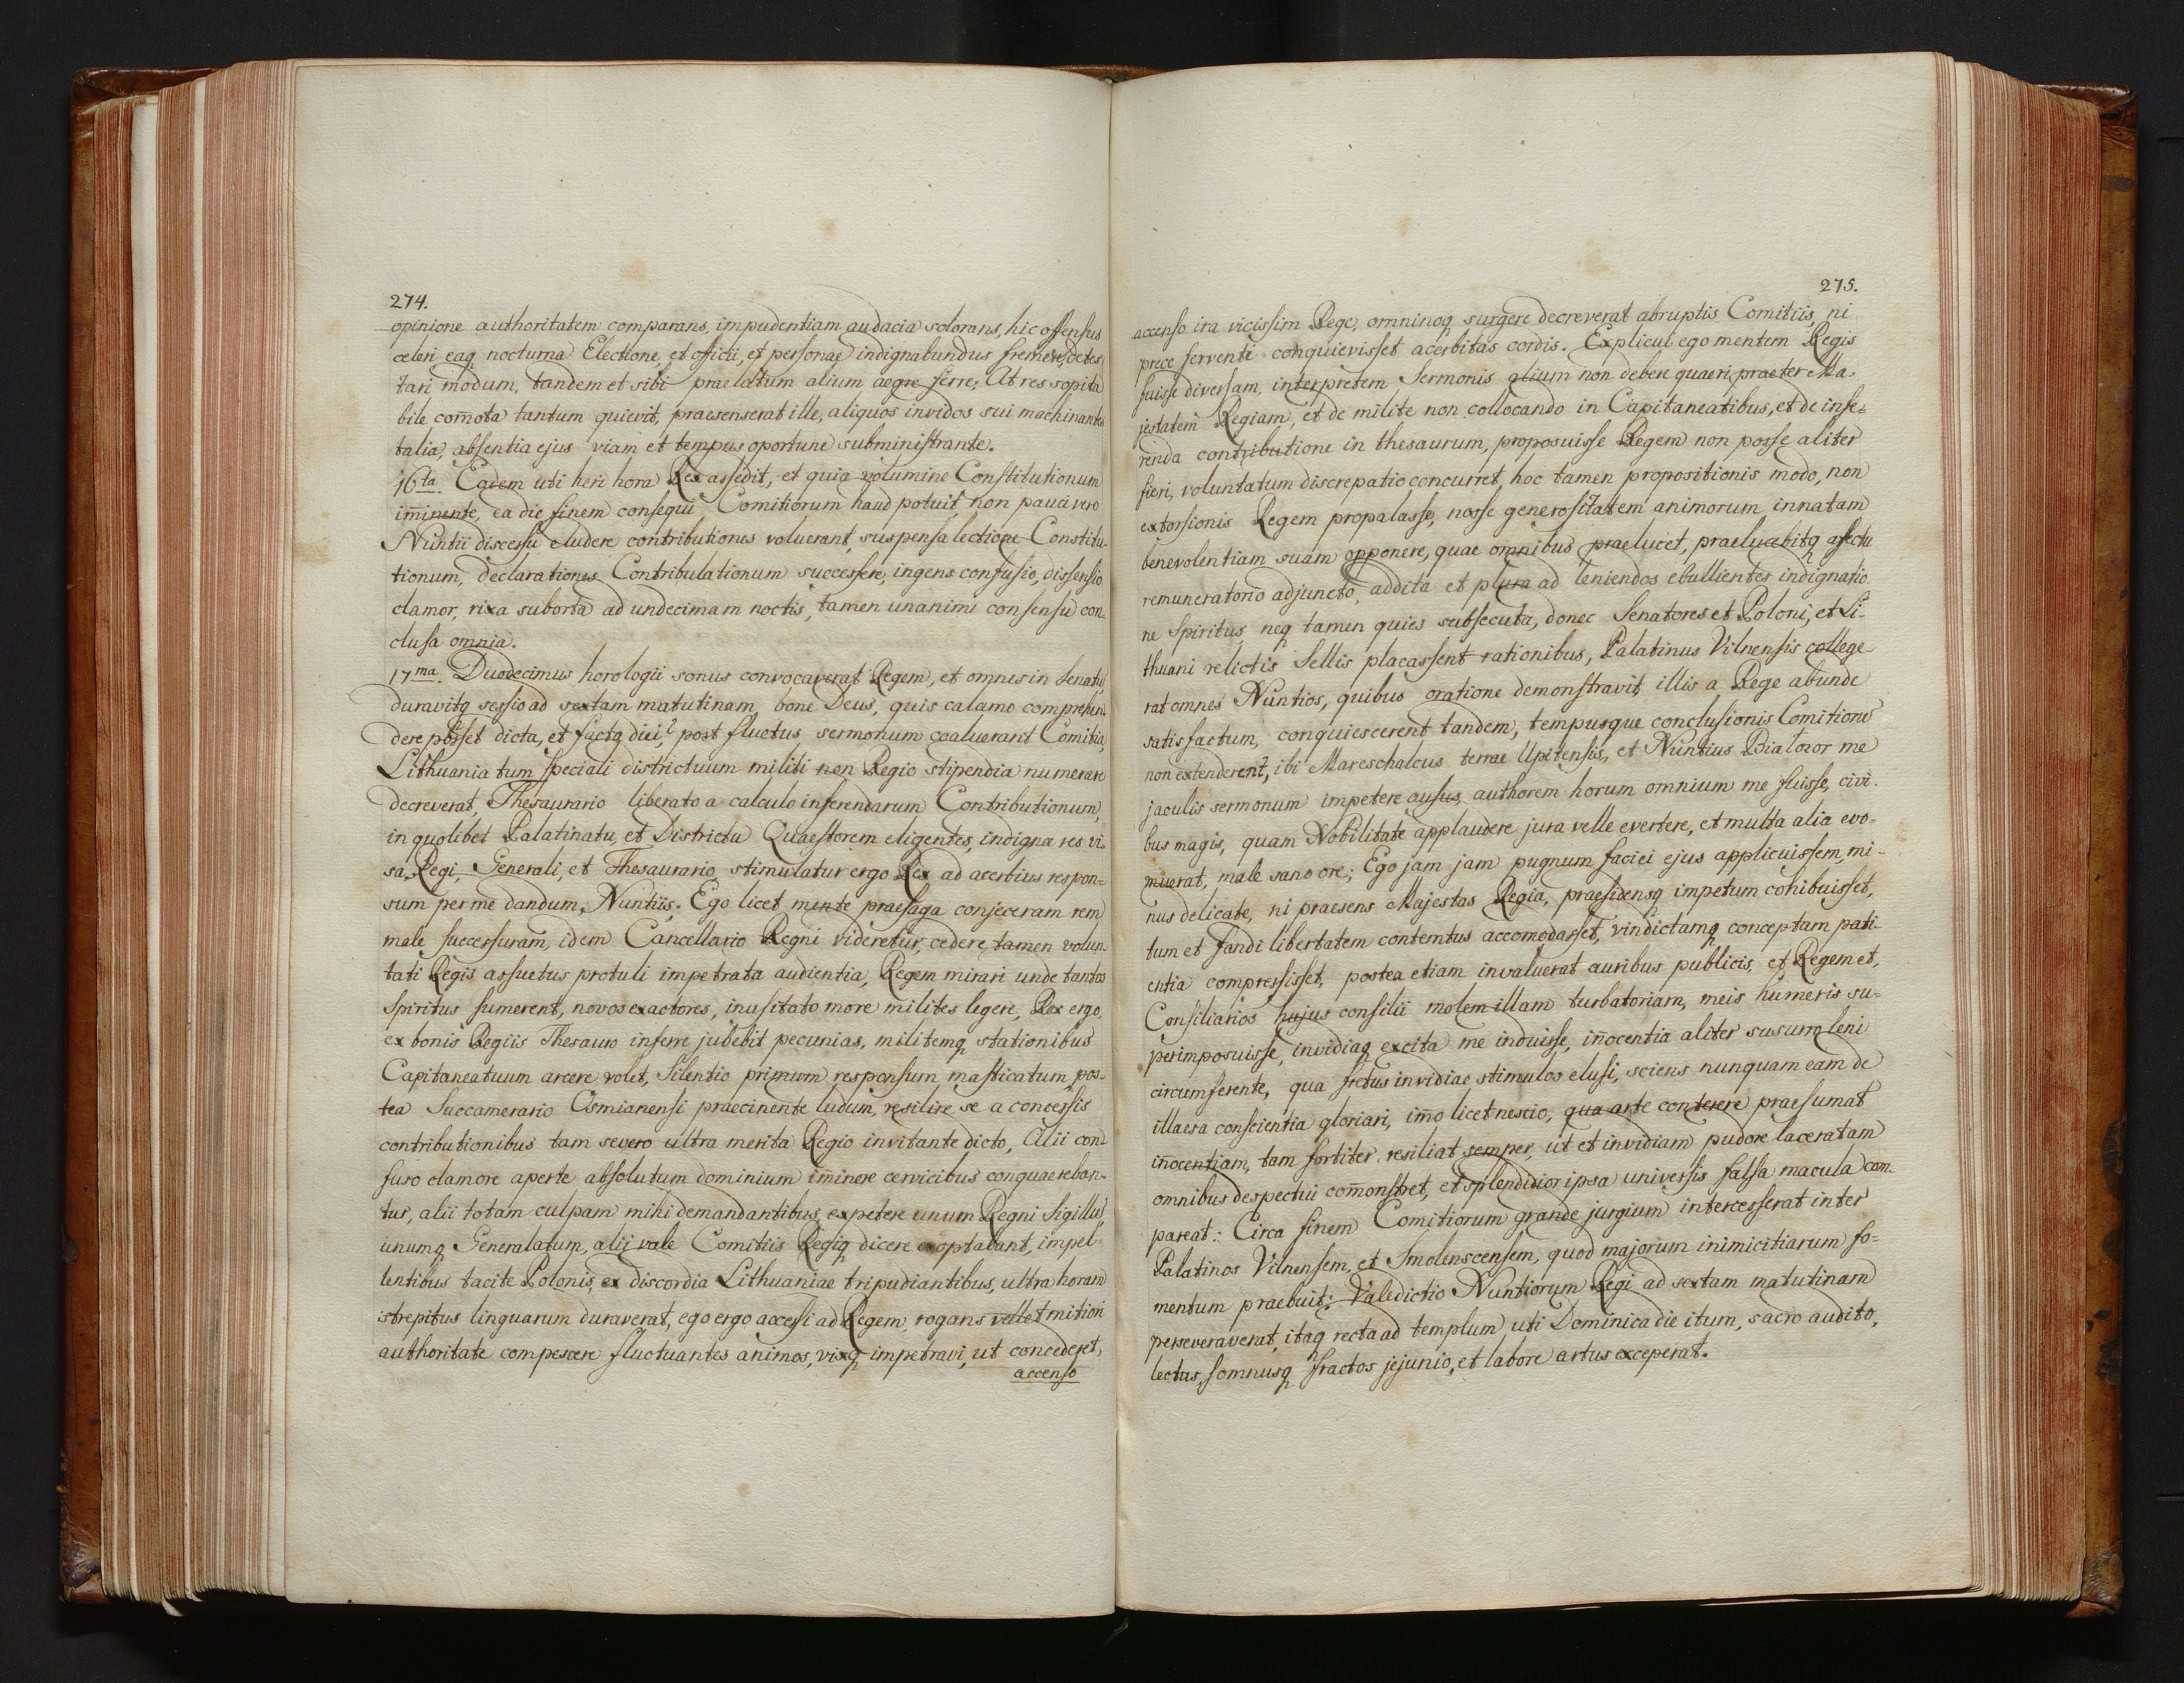 274.
opinione authoritatem comparans, impudentiam audacia solorans, hic offensus
celeri eaq nocturna Electione, et officii, et personae indignabundus fremere, detes
tari modum, tandem et sibi praelatum alium aegre ferre; At res sopita
bile com̄ota tantum quievit, praesenserat ille, aliquos invidos sui machinantes
talia, absentia ejus viam et tempus oportune subministrante.
16ta. Eadem uti heri hora Rex assedit, et quia volumine Constitutionum
im̄inente, ea die finem consequi Comitiorum haud potuit, non pauci vero
Nuntii discessu eludere contributiones voluerant, suspensa lectione Constitu-
tionum, declarationes Contribulationum successere, ingens confusio, dissensio
clamor, rixa suborta ad undecimam noctis, tamen unanimi consensu con-
clusa omnia.
17ma. Duodecimus horologii sonus convocaverat Regem, et omnes in Senatu,
duravitq sessio ad sextam matutinam, bone Deus, quis calamo comprehen
dere posset dicta, et facta diei? post fluctus sermonum coaluerant Comitia,
Lithuania tum speciali districtuum militi non Regio stipendia numerare
decreverat, Thesaurario liberato a calculo inferendarum Contributionum,
in quolibet Palatinatu, et Districtu Quaestorem eligentes, indigna res vi-
sa, Regi, Generali, et Thesaurario, stimulatur ergo Rex ad acerbius respon=
sum per me dandum, Nuntiis. Ego licet mente praesaga conjeceram rem
male successuram, idem Cancellario Regni videretur, cedere tamen volun
tati Regis assuetus protuli impetrata audientia, Regem mirari unde tantos
Spiritus sumerent, novos exactores, inusitato more milites legere, Rex ergo
ex bonis Regiis Thesauro inferre jubebit pecunias, militemq stationibus
Capitaneatuum arcere volet, Silentio primum responsum, masticatum pos-
tea Succamerario Osmianensi praecinente ludum, resilire se a concessis
contributionibus tam severo ultra merita Regio invitante dicto, Alii con-
fuso clamore aperte absolutum dominium im̄inere cervicibus conquaereban-
tur, alii totam culpam mihi demandantibus, expetere unum Regni Sigillū,
unumq Generalatum, alij vale Comitiis Regiq dicere exoptabant, impel-
lentibus tacite Polonis, ex discordia Lithuaniae tripudiantibus, ultra horam
strepitus linguarum duraverat, ego ergo accessi ad Regem, rogans vellet mitiori
authoritate compescere fluctuantes animos, vixq impetravi, ut concederet,
accenso
275.
accenso ira vicissim Rege, omninoq surgere decreverat abruptis Comitiis, ni
prece ferventi conquievisset acerbitas cordis. Explicui ego mentem Regis
fuisse diversam, interpretem Sermonis alium non debere quaeri praeter Ma-
jestatem Regiam, et de milite non collocando in Capitaneatibus, et de infe=
renda contributione in thesaurum, proposuisse Regem non posse aliter
fieri, voluntatum discrepatio concurret, hoc tamen propositionis modo, non
extorsionis Regem propalasse, nosse generositatem animorum innatam
benevolentiam suam opponere, quae omnibus praelucet, praelucebitq affectu
remuneratorio adjuncto, addita et plura ad leniendos ebullientes indignatio-
ne Spiritus, neq tamen quies subsecuta, donec Senatores et Poloni, et Li-
thuani relictis Sellis placassent rationibus, Palatinus Vilnensis college
rat omnes Nuntios, quibus oratione demonstravit illis a Rege abunde
satisfactum, conquiescerent tandem, tempusque conclusionis Comitiorū
non extenderent, ibi Mareschalcus terrae Upitensis, et Nuntius Białozor me
jaculis sermonum impetere ausus, authorem horum omnium me fuisse, civi-
bus magis, quam Nobilitate applaudere jura velle evertere, et multa alia evo-
muerat, male sano ore; Ego jam jam pugnum faciei ejus applicuissem, mi-
nus delicate, ni praesens Majestas Regia, praesidensq impetum cohibuisset,
tum et fandi libertatem contemtus accomodasset, vindictamq conceptam pati-
entia compressisset, postea etiam invaluerat auribus publicis, et Regem et,
Consiliarios hujus consilii molem illam turbatoriam, meis humeris su-
perimposuisse, invidiaq excita me induisse, in̄ocentia aliter susurro leni
circumferente, qua fretus invidiae stimulos elusi, sciens nunquam eam de
illaesa conscientia gloriari, im̄o licet nescio, qua arte conterere praesumat
in̄ocentiam, tam fortiter resiliat semper, ut et invidiam pudore laceratam
omnibus despectui com̄onstret, et splendidior ipsa universis falsa macula com-
pareat: Circa finem Comitiorum grande jurgium intercesserat inter
Palatinos Vilnensem, et Smolenscensem, quod majorum inimicitiarum fo=
mentum praebuit: Valedictio Nuntiorum Regi ad sextam matutinam
perseveraverat, itaq recta ad templum uti Dominica die itum, sacro audito,
lectus, somnusq fractos jejunio, et labore artus exceperat.